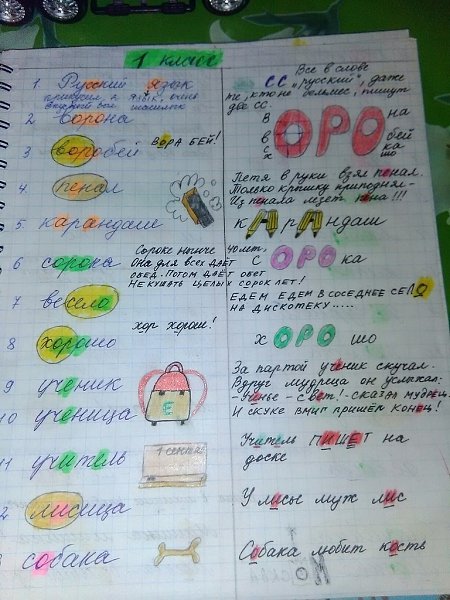 1 класс
1. Русский язык
прикусил я язык, очень
2 Ворона
3 воробей ВОРА БЕЙ!
4. пенал
5 карандаш
6 сорока
Сороке нынче 40 лет.
Она для всех даёт
обед. Потом даёт обет
Не кушать целых сорок лет!
7 весело
8 хорошо
хор хорош!
9 ученик
10 ученица
11 учитель
1 сент
лисица
собака
Все в слове
СС "русский", даже
те, кто не больше, пишут
два СС.
В ОРО на
в бей
с ка
х шо
Петя в руки взял пенал.
Только крышку приподнял-
Из пенала лезет пена!!!
КАрАндаш
С ОРО ка
ЕДЕМ ЕДЕМ В СОСЕДНЕЕ СЕЛО
НА ДИСКОТЕКУ.....
х ОРО шо
За партой ученик скучал.
Вдруг мудреца он услыхал:
-Ученье - свет! - сказал мудрец.
И скуке вмиг пришёл конец!
Учитель ПИШЕТ на
доске
У лисы муж лис
Собака любит кость